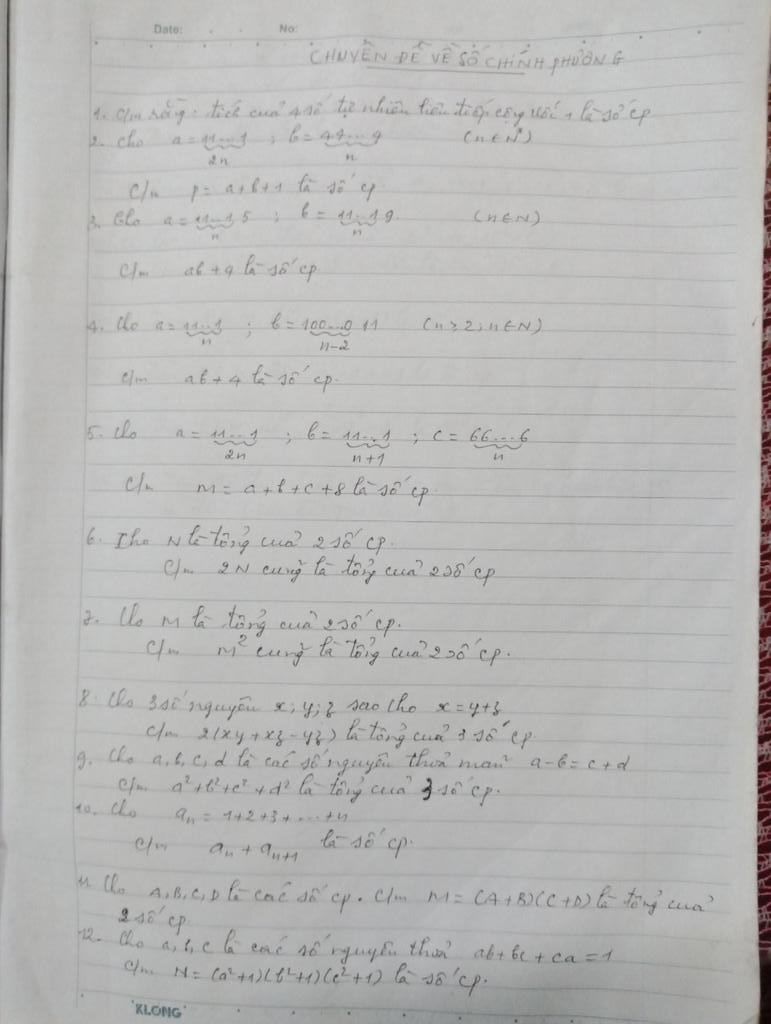 Date: No:
CHUYÊN ĐỀ VỀ SỐ CHÍNH PHƯƠNG
1. C/m rằng: tích của 4 số tự nhiên liên tiếp cộng với 1 là số cp
2. Cho a = 11...1 ; b = 44...4 (n ∈ N*)
2n n
C/m p = a + b + 1 là số cp
3. Cho a = 11...1 5 ; b = 11...1 9. (n ∈ N)
n n
C/m ab + 4 là số cp
4. Cho a = 11...1 ; b = 100...0 11 (n ≥ 2; n ∈ N)
n n-2
C/m ab + 4 là số cp.
5. Cho a = 11...1 ; b = 11...1 ; c = 66...6
2n n+1 n
C/m M = a + b + c + 8 là số cp.
6. Cho N là tổng của 2 số cp.
C/m 2N cũng là tổng của 2 số cp
7. Cho M là tổng của 2 số cp.
C/m M² cũng là tổng của 2 số cp.
8. Cho 3 số nguyên x; y; z sao cho x = y + z
C/m 2(xy + xz - yz) là tổng của 3 số cp
9. Cho a, b, c, d là các số nguyên thoả mãn a - b = c + d
C/m a² + b² + c² + d² là tổng của 3 số cp.
10. Cho aₙ = 1 + 2 + 3 + ... + n
C/m aₙ + aₙ₊₁ là số cp.
11. Cho A, B, C, D là các số cp. C/m M = (A + B)(C + D) là tổng của
2 số cp
12. Cho a, b, c là các số nguyên thoả ab + bc + ca = 1
C/m N = (a² + 1)(b² + 1)(c² + 1) là số cp.
KLONG